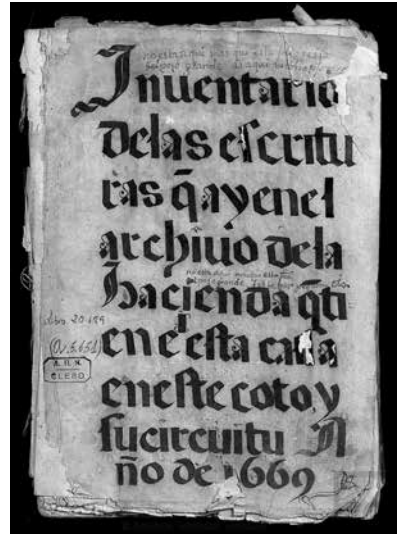 Inuentario
delas escritu
ras q̄ ay enel
archiuo dela
hacienda q̄ ti
en e esta casa
eneste coto y
su circuitu A
ño de 1669
A. H. N.
CLERO